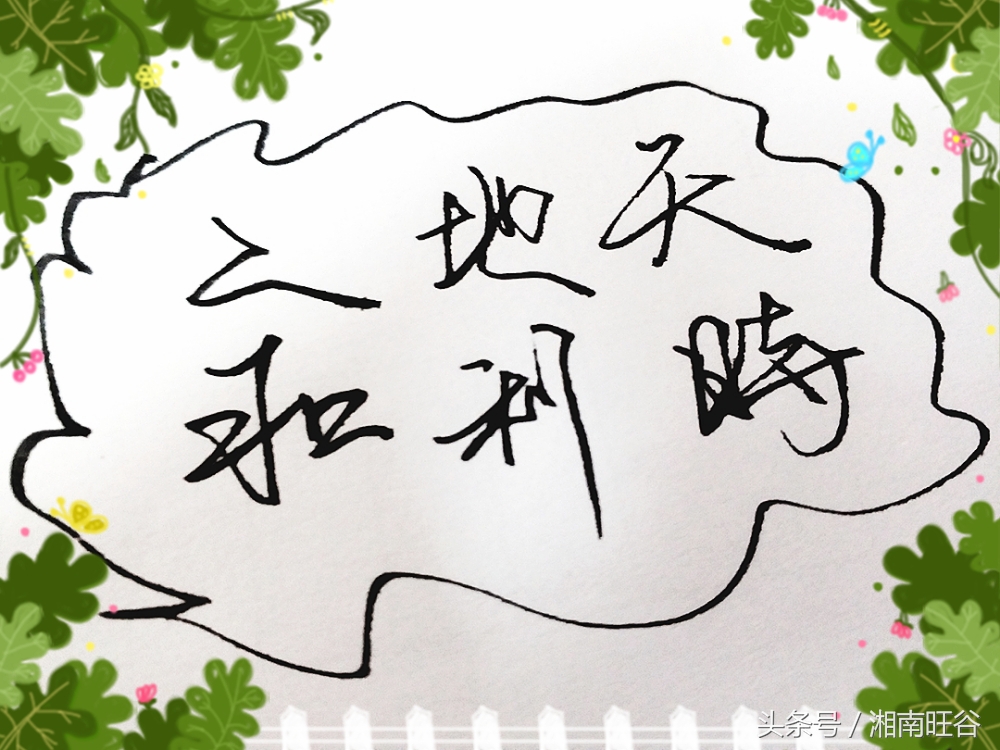 天時
地利
人和
头条号 / 湘南旺谷